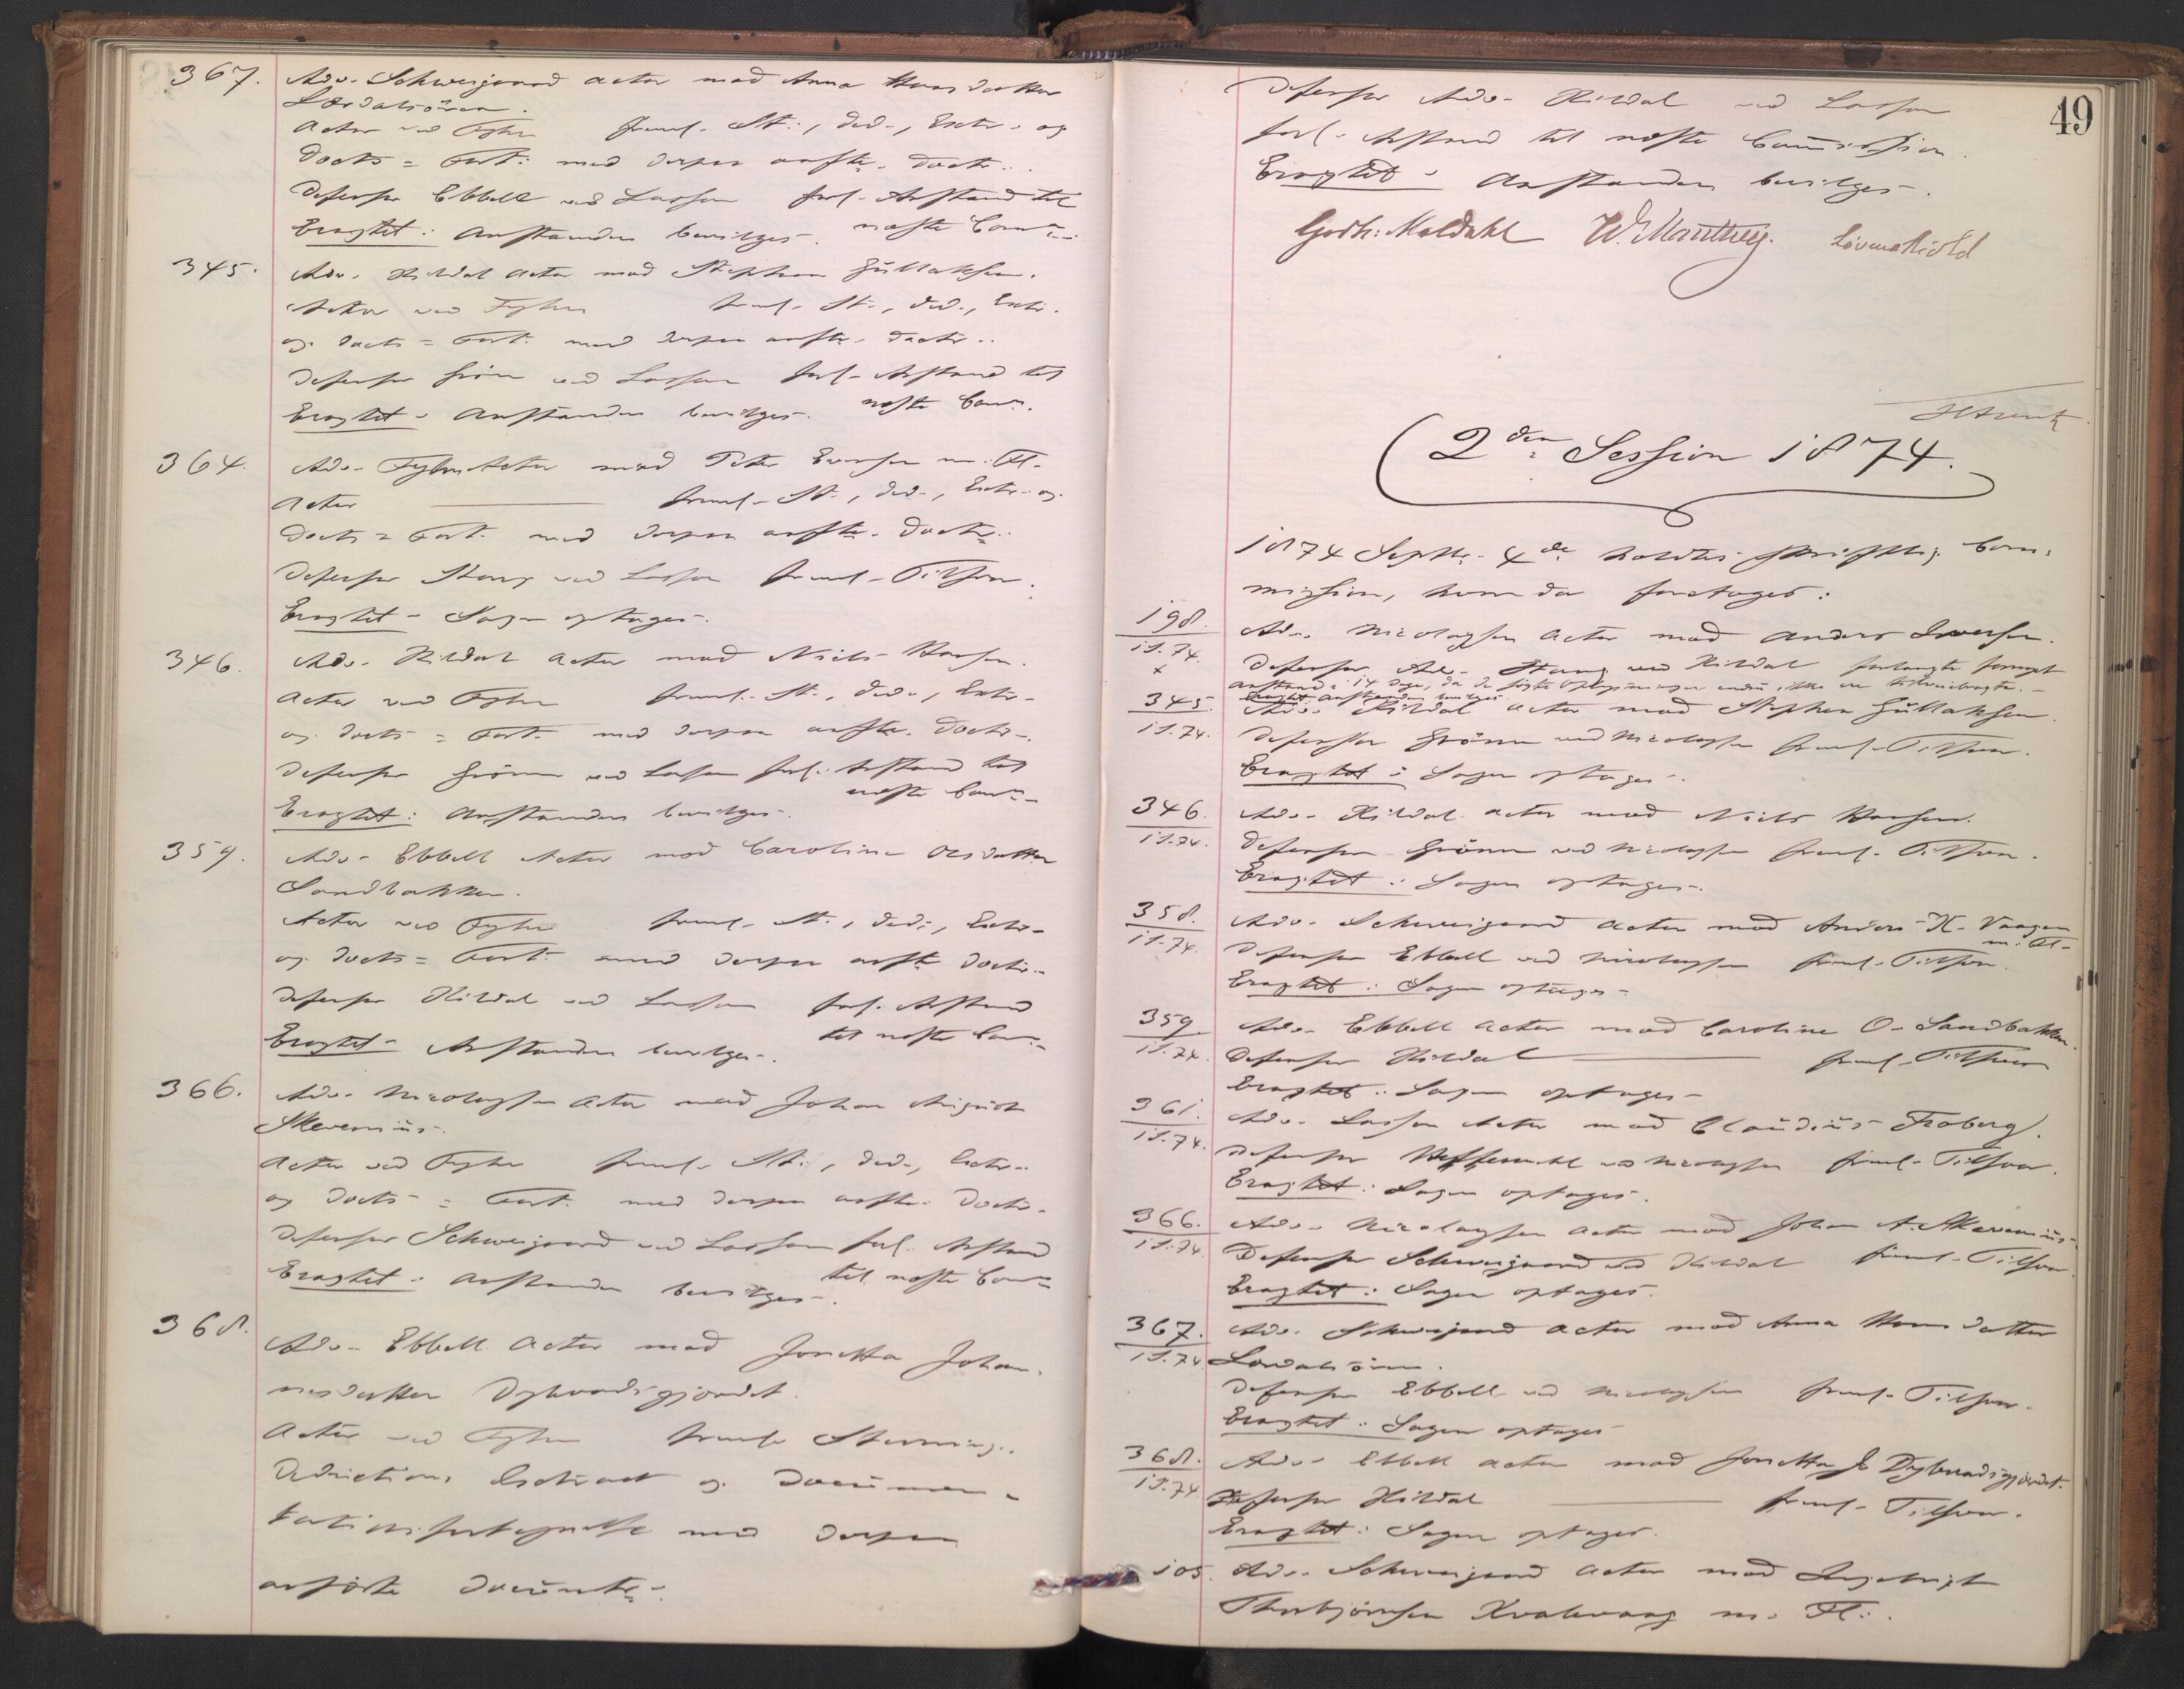 367. Adv. Schweigaard Actor mod Anna Hansdatter
Lærdalsören.
Actor ved Fyhn freml. St., Ded., Extr. og
Docts = Fort. med derpaa anförte Doctr.
Defensor Ebbell ved Lasson forl. Anstand til
næste Comm.
Eragtet: Anstanden bevilges.
345. Adv. Hildal Actor mod Stephan Gullaksen.
Actor ved Fyhn freml. St., Ded., Extr.
og Docts = Fort. med derpaa anförte Doctr.
Defensor Grönn ved Lasson forl. Anstand til
næste Comm.
Eragtet: Anstanden bevilges.
364. Adv. Fyhn Actor mod Peter Evensen m. Fl.
Actor freml. St., Ded., Extr. og
Docts = Fort. med derpaa anförte Doctr.
Defensor Stang ved Lasson freml. Tilsvar.
Eragtet: Sagen optages.
346. Adv. Hildal Actor mod Niels Hansen.
Actor ved Fyhn freml. St., Ded., Extr.
og Docts = Fort. med derpaa anförte Doctr.
Defensor Grönn ved Lasson forl. Anstand til
næste Comm.
Eragtet: Anstanden bevilges.
359. Adv. Ebbell Actor mod Caroline Olsdatter
Sandbakken.
Actor ved Fyhn freml. St., Ded., Extr.
og Docts = Fort. med derpaa anförte Doctr.
Defensor Hildal ved Lasson forl. Anstand
til næste Comm.
Eragtet: Anstanden bevilges.
366. Adv. Nicolaysen Actor mod Johan August
Skevenius.
Actor ved Fyhn freml. St., Ded., Extr.
og Docts = Fort. med derpaa anförte Doctr.
Defensor Schweigaard ved Lasson forl. Anstand
til næste Comm.
Eragtet: Anstanden bevilges.
368. Adv. Ebbell Actor mod Jonetta Johan-
nesdatter Dybvadsgjordet.
Actor ved Fyhn freml. Stævning,
Deductions Extract og Documen-
tationsfortegnelse med derpaa
anförte Documtr.
49
Defensor Adv. Hildal ved Lasson
forl. Anstand til næste Commission.
Eragtet: Anstanden bevilges.
Godtz: Moldahl W. Manthey. Lövenskiold
2den Session 1874.
1874 Septbr. 4de holdtes skriftlig Com-
mission, hvor da foretoges:
198. Adv. Nicolaysen Actor mod Anders Iversen.
1S.74. Defensor Adv. Stang ved Hildal forlangte fornyet
x Anstand i 14 Dage, da de sögte Oplysninger endnu ikke ere tilveiebragte.
Eragtet: Anstanden bevilges.
345. Adv. Hildal Actor mod Stephan Gullaksen.
1S.74. Defensor Grönn ved Nicolaysen freml. Tilsvar.
Eragtet: Sagen optages.
346. Adv. Hildal Actor mod Niels Hansen.
1S.74. Defensor Grönn ved Nicolaysen freml. Tilsvar.
Eragtet: Sagen optages.
358. Adv. Schweigaard Actor mod Anders K. Vaagen
m. Fl.
1S.74. Defensor Ebbell ved Nicolaysen freml. Tilsvar.
Eragtet: Sagen optages.
359. Adv. Ebbell Actor mod Caroline O. Sandbakken.
1S.74. Defensor Hildal freml. Tilsvar
Eragtet: Sagen optages.
361. Adv. Lasson Actor mod Claudius Froberg.
1S.74. Defensor ved Nicolaysen freml. Tilsvar.
Eragtet: Sagen optages.
366. Adv. Nicolaysen Actor mod Johan A. Skevenius.
1S.74. Defensor Schweigaard ved Hildal freml. Tilsvar.
Eragtet: Sagen optages.
367. Adv. Schweigaard Actor mod Anna Hansdatter
1S.74. Lærdalsören.
Defensor Ebbell ved Nicolaysen freml. Tilsvar.
Eragtet: Sagen optages
368. Adv. Ebbell Actor mod Jonetta J. Dybvadsgjordet.
1S.74 Defensor Hildal freml. Tilsvar.
Eragtet: Sagen optages.
105. Adv. Schweigaard Actor mod Ingebrigt
Thorbjörnsen Kvalvaag m. Fl.